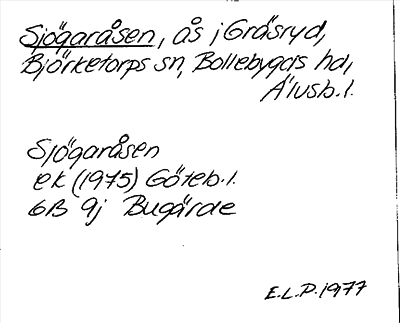 Sjögaråsen, ås i Gräsryd,
Björketorps sn, Bollebygds hd,
Älvsb. l.
Sjögaråsen
ek (1975) Göteb. l.
6B 9j Bugärde
E.L.P. 1977